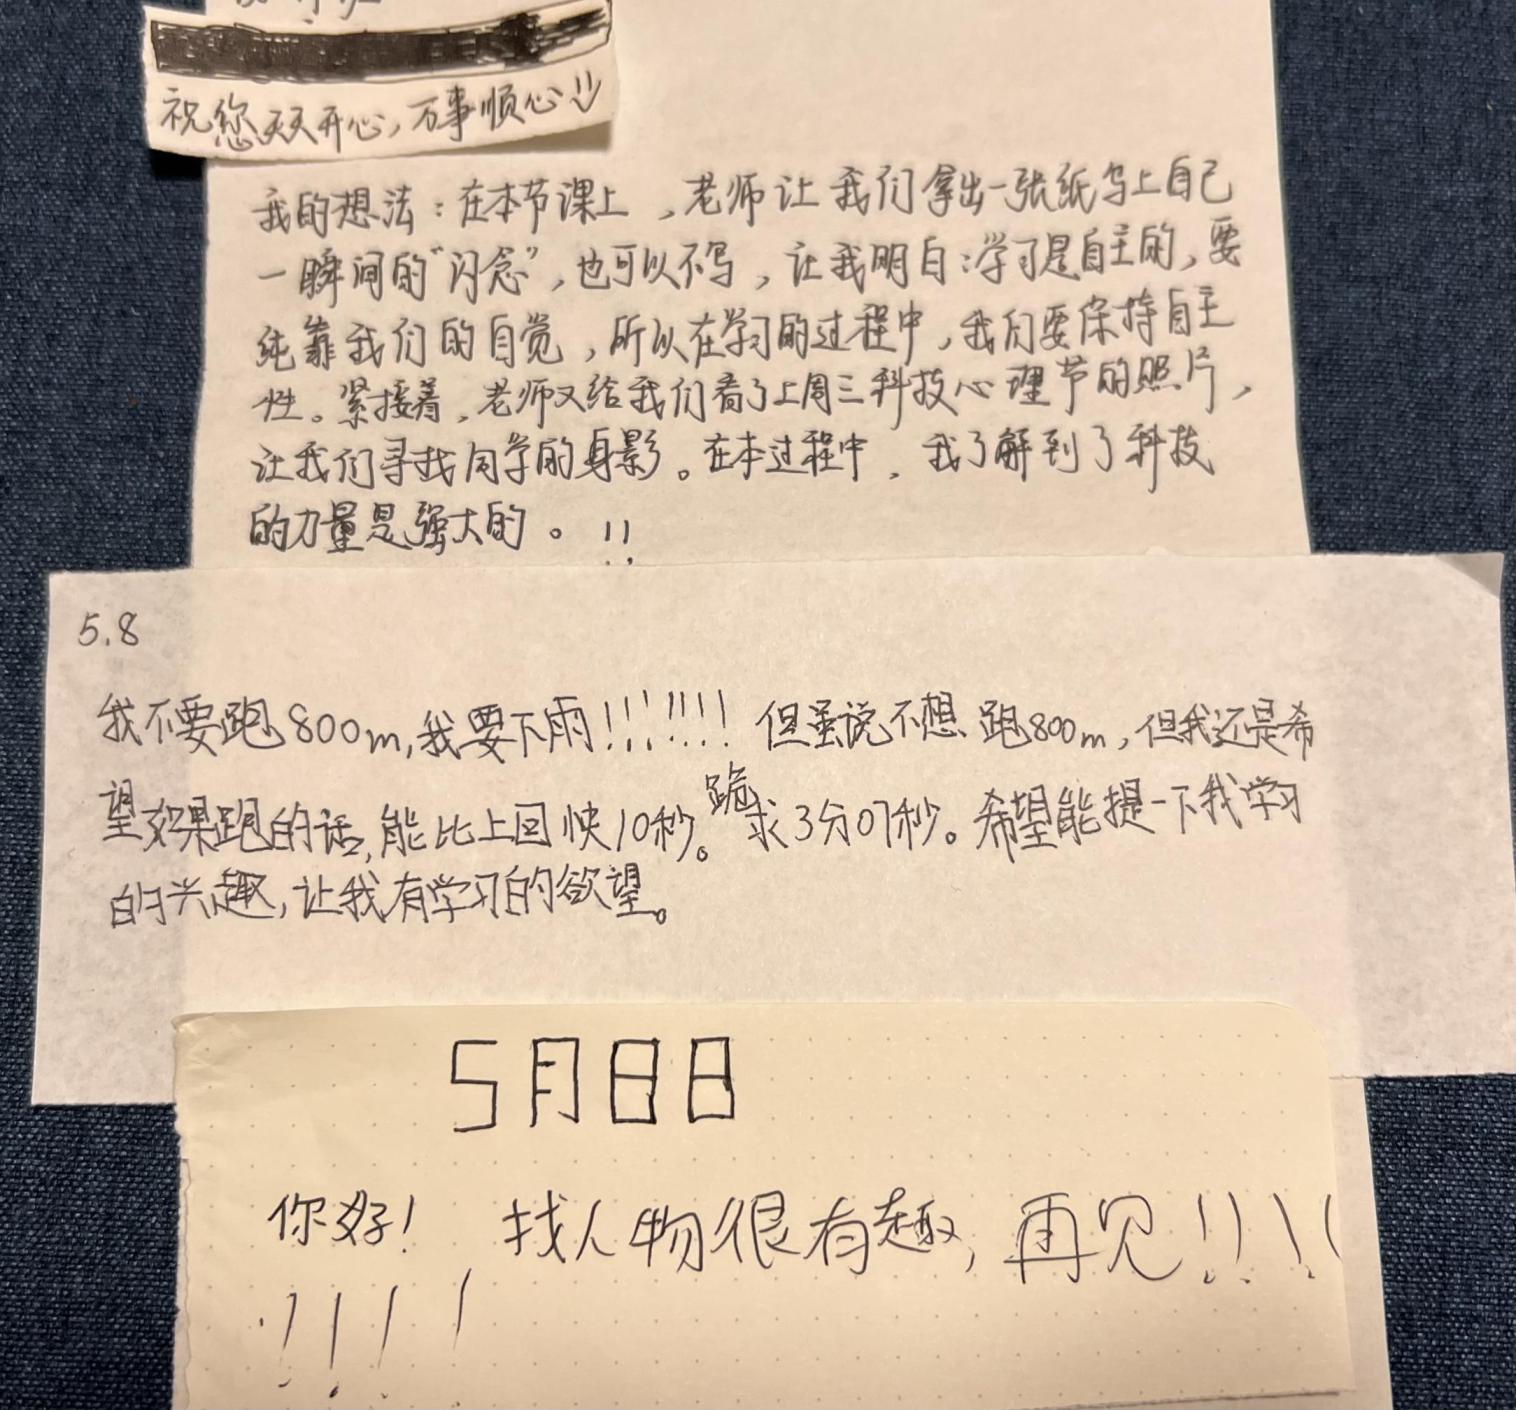 祝您天天开心,万事顺心!!
我的想法:在本节课上,老师让我们拿出一张纸写上自己
一瞬间的“闪念”,也可以不写,让我明白:学习是自主的,要
纯靠我们的自觉,所以在学习的过程中,我们要保持自主
性。紧接着,老师又给我们看了上周三科技心理节的照片,
让我们寻找同学的身影。在本过程中,我了解到了科技
的力量是强大的。!!
5.8
我不要跑800m,我要下雨!!!!!!! 但虽说不想跑800m,但我还是希
望如果跑的话,能比上回快10秒。跪求3分07秒。希望能提一下我学习
的兴趣,让我有学习的欲望。
5月8日
你好! 找人物很有趣,再见!!!!
!!!!